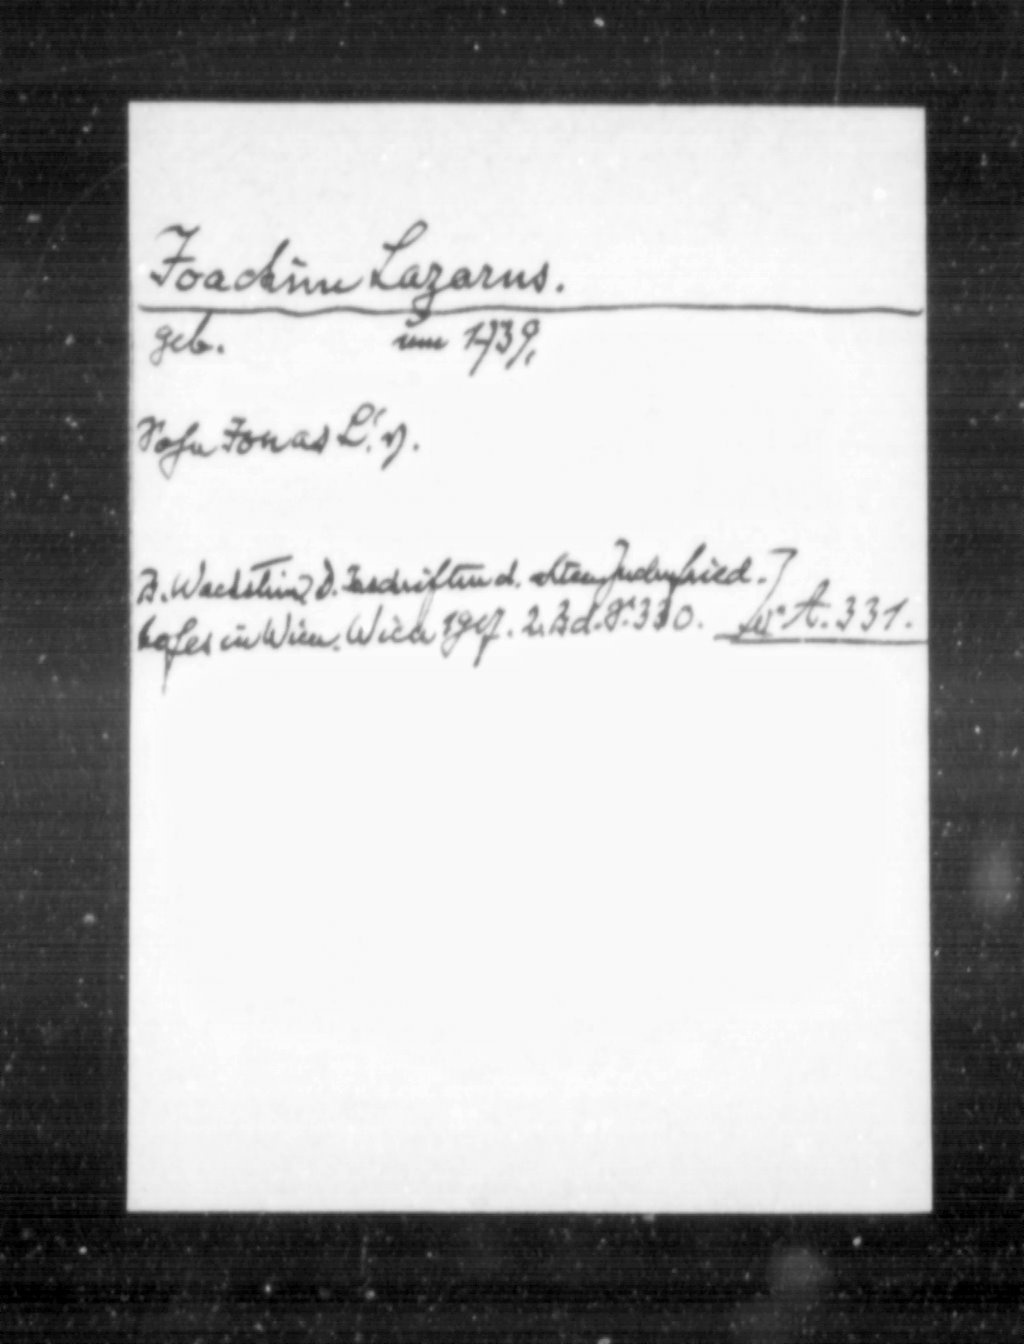 Joachim Lazarus.
geb. um 1739,
Sohn Jonas L's.
B. Wachstein, D. Inschriften d. alten Judenfried-
hofes in Wien. Wien 1917. 2. Bd. S. 330. A. 331.